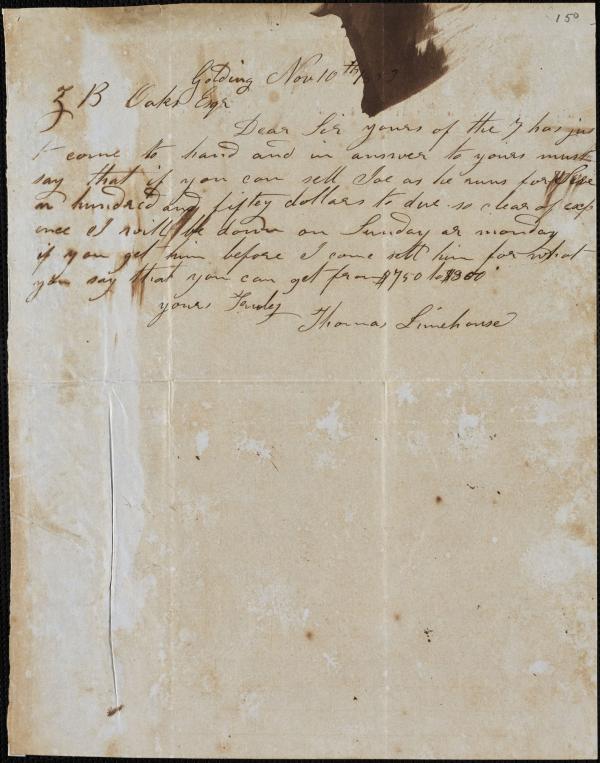 150
Golding Nov 10th 1853
Z B Oakes Esqr
Dear Sir yours of the 7 has jus
t come to hand and in answer to yours must
say that if you can sell Joe as he runs for
n hundred and fifty dollars to due so clear of exp
ence I will be down on Sunday or monday
if you get him before I come sell him for what
you say that you can get from $750 to $800
yours Truley
Thomas Limehouse